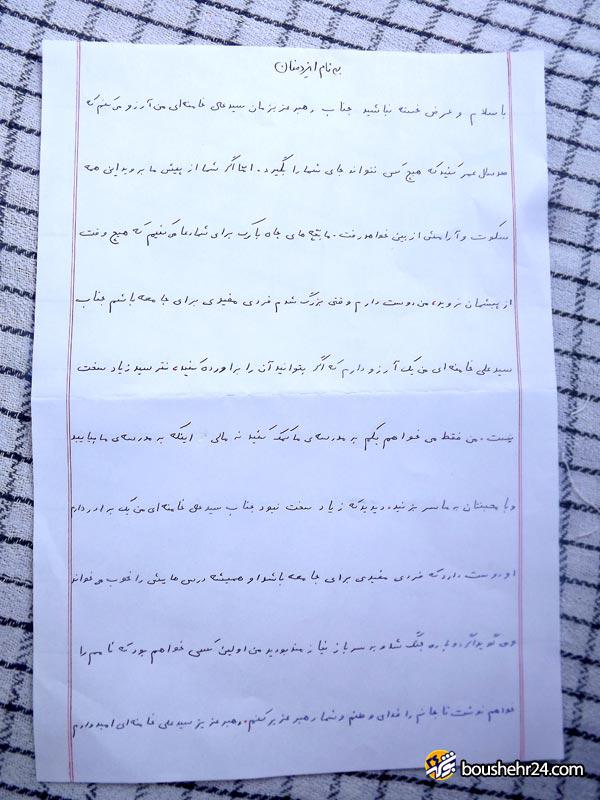 به نام ایزدمنان
با سلام و عرض خسته نباشید جناب رهبر عزیزمان سید علی خامنه‌ای من آرزو می‌کنم که
صد سال عمر کنید که هیچ کس نتواند جای شما را بگیرد. اما اگر شما از پیش ما بروید این همه
سکوت و آرامش از بین خواهد رفت. ما بچه های چاه بارک برای شما دعا می‌کنیم که هیچ وقت
از پیشمان نروید، من دوست دارم وقتی بزرگ شدم فردی مفیدی برای جامعه باشم جناب
سید علی خامنه‌ای من یک آرزو دارم که اگر بتوانید آن را براورده کنید، نترسید زیاد سخت
نیست. من فقط می خواهم بگم به مدرسه‌ی ما کمک کنید نه مالی اینکه به مدرسه‌ی ما بیایید
و با محبتتان به ما سر بزنید. دیدید که زیاد سخت نبود جناب سید علی خامنه‌ای من یک برادر دارم
او دوست دارد که فردی مفیدی برای جامعه باشد او همیشه درس هایش را خوب می‌خواند
و می گوید اگر دوباره جنگ شد و به سرباز نیازمند بودید من اولین کسی خواهم بود که نامم را
خواهم نوشت تا جانم را فدای وطنم و شما رهبر عزیز کنم. رهبر عزیز سید علی خامنه‌ای امیدوارم
boushehr24.com